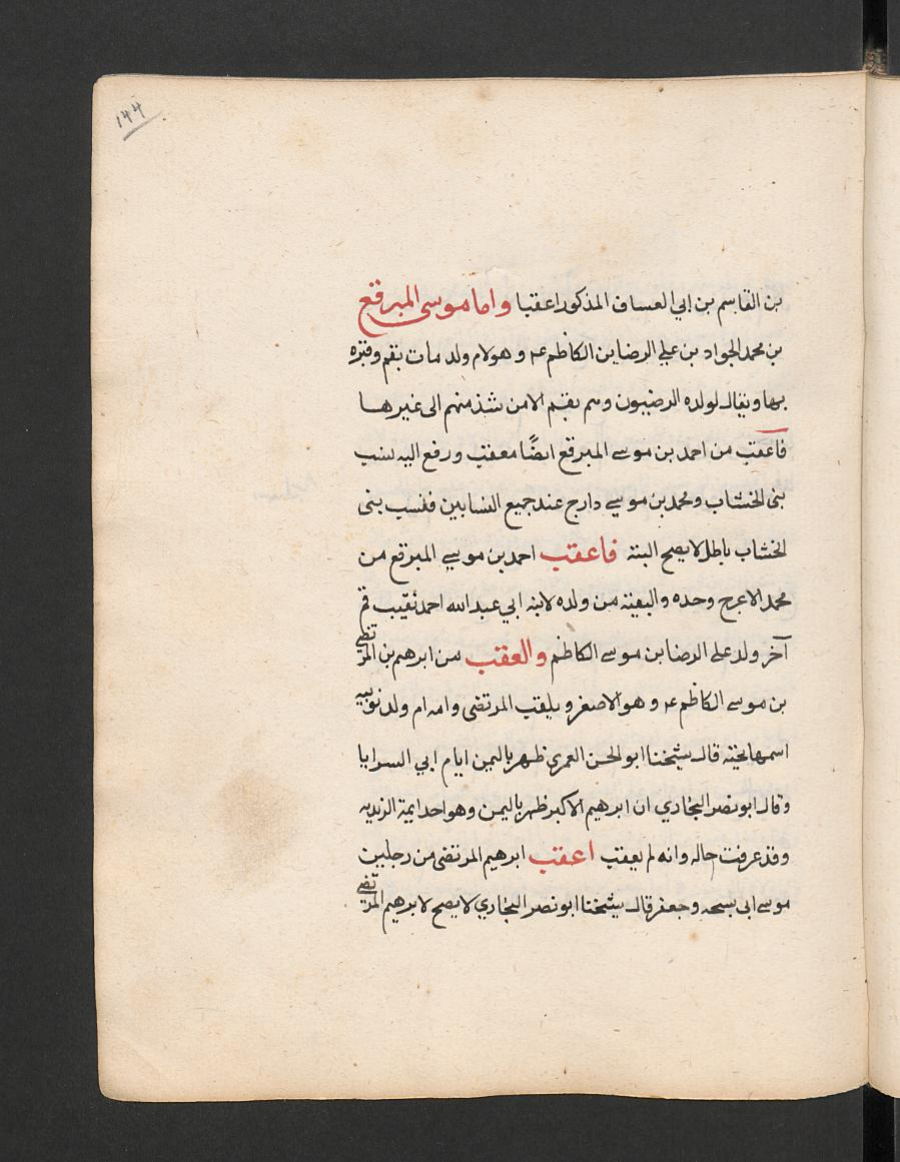 ١٤٤
بن القاسم بن ابي العساف المذكور اعقبا واما موسى المبرقع
بن محمد الجواد بن علي الرضا بن الكاظم عه وهو لام ولد مات بقم وقبره
بها ويقال لولده الرضيون وهم بقم الا من شذ منهم الى غيرها
فاعقب من احمد بن موسى المبرقع ايضًا معقب ورفع اليه نسب
بنى الخشاب ومحمد بن موسى دارج عند جميع النسابين فنسب بنى
الخشاب باطل لا يصح البتة فاعقب احمد بن موسى المبرقع من
محمد الاعرج وحده والبقية من ولده لابنه ابي عبد الله احمد نقيب قم
آخر ولد على الرضا بن موسى الكاظم والعقب من ابرهيم بن المرتضى
بن موسى الكاظم عه وهو الاصغر ويلقب المرتضى وامه ام ولد نوبيه
اسمها نجية قال شيخنا ابو الحسن العمري ظهر باليمن ايام ابي السرايا
وقال ابو نصر البخاري ان ابرهيم الاكبر ظهر باليمن وهو احد ايمة الزيديه
وقد عرفت حاله وانه لم يعقب اعقب ابرهيم المرتضى من رجلين
موسى ابى سبحه وجعفر قال شيخنا ابو نصر البخاري لا يصح لابرهيم المرتضى